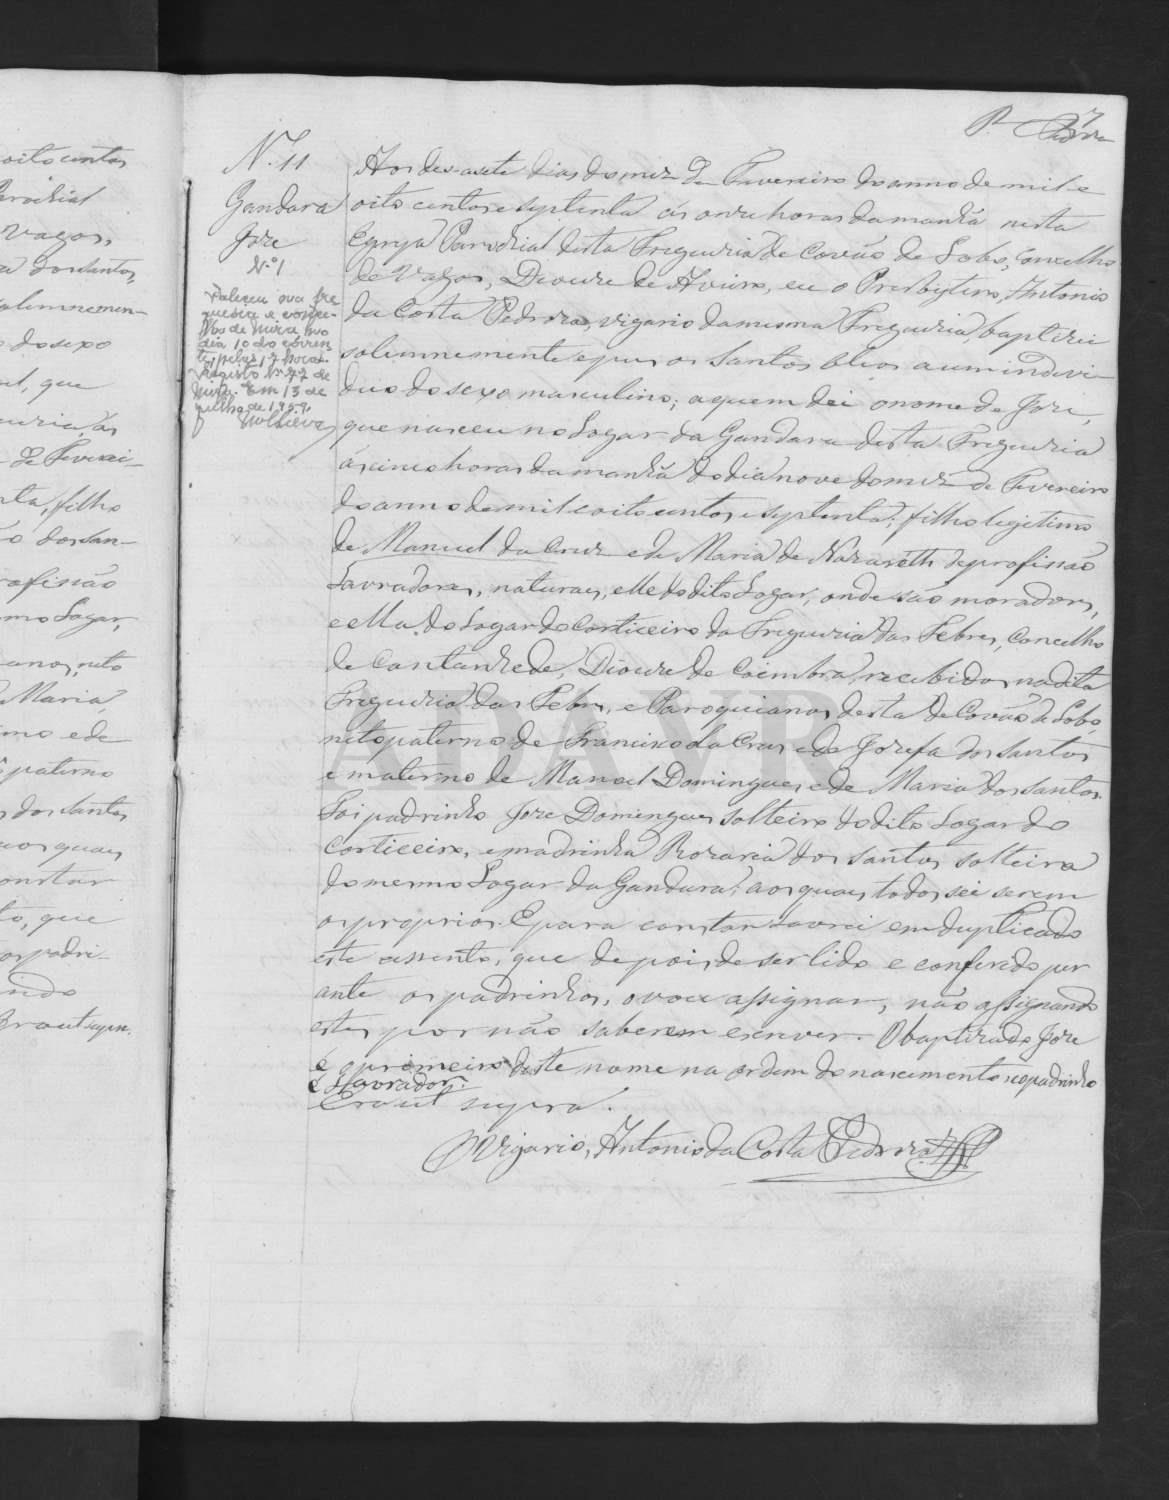 7
N.º 11
Gandara
Joze
N.º 1
Faleceu na fre
guesia e conce-
lho de Mira no
dia 10 do corren
te, pelas 17 horas.
Registo Nº 77 de
Mira. Em 13 de
julho de 1959.
Aos desasete dias do mez de Fevereiro do anno de mil e
oito centos e septenta ás onze horas da manhã nesta
Egreja Parochial desta Freguezia de Covão de Lobo, Concelho
de Vagos, Diocese de Aveiro, eu o Presbytero, Antonio
da Costa Pedroza, vigario da mesma Freguezia, baptizei
solemnemente e puz os Santos Oleos a um indivi-
duo do sexo masculino; a quem dei o nome de Joze,
que nasceu no Logar da Gandara desta Freguezia
ás cinco horas da manhã do dia nove do mez de Fevereiro
do anno de mil e oito centos e septenta; filho legitimo
de Manuel da Cruz e de Maria de Nazareth de profissão
Lavradores, naturaes, elle do dito Logar, onde são moradores,
e ella do Logar do Corticeiro da Freguezia das Febres, Concelho
de Cantanhede, Diocese de Coimbra, recebidos na dita
Freguezia das Febres, e Paroquianos desta de Covão de Lobo,
neto paterno de Francisco da Cruz e de Jozefa dos Santos
e materno de Manoel Domingues e de Maria dos Santos.
Foi padrinho Joze Domingues solteiro do dito Logar do
Corticeiro, e madrinha Rozaria dos Santos solteira
do mesmo Logar da Gandara; aos quaes todos sei serem
os proprios. E para constar lavrei em duplicado
este assento, que depois de ser lido e conferido per
ante os padrinhos, o vou assignar, não assignando
estes por não saberem escrever. O baptizado Joze
é o primeiro deste nome na ordem do nascimento e o padrinho
é Lavrador.
Era ut supra.
O Vigario, Antonio da Costa Pedroza
oito centos
Parochial
Vagos,
dos Santos,
solemnemen-
do sexo
que
ás
de Feverei-
filho
dos San-
profissão
mo Logar,
anos, neto
Maria
mo e de
paterno
dos Santos
aos quaes
constar
to, que
os padri-
Era ut supra.
ADAVR